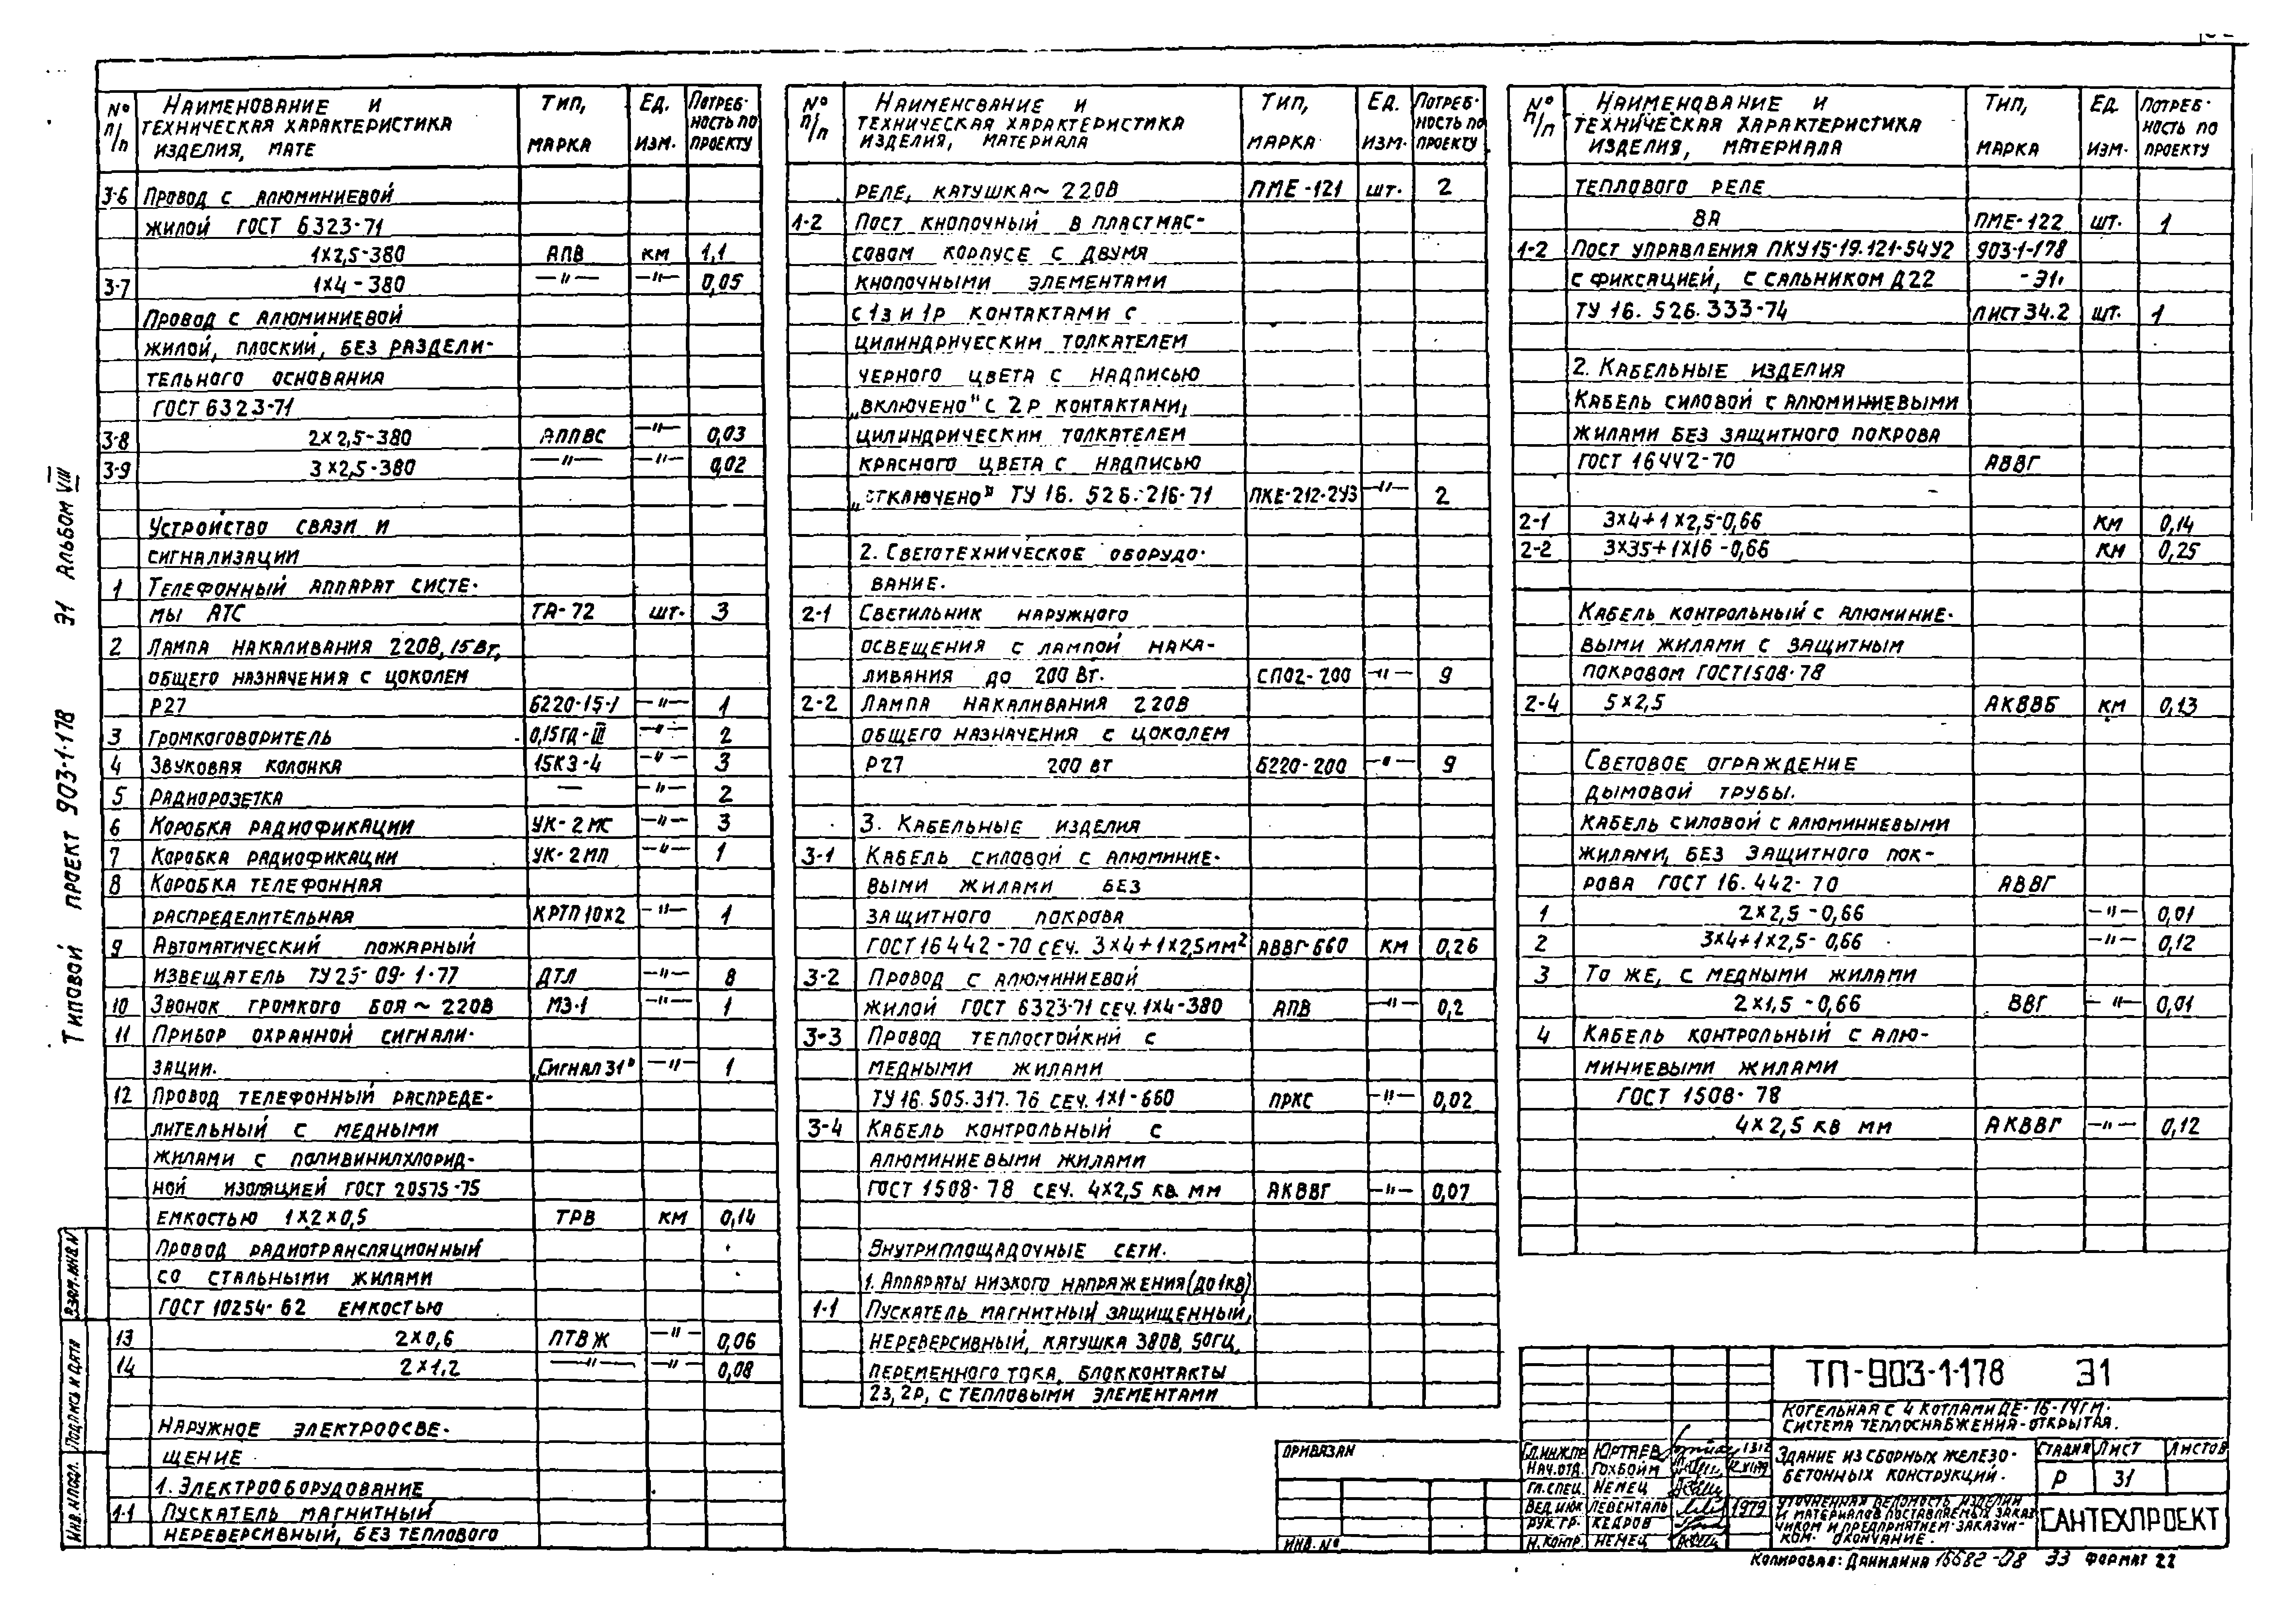 Типовой проект 903-1-178 Э1 Альбом VIII
№ п/п Наименование и техническая характеристика изделия, мате Тип, марка Ед. изм. Потребность по проекту
3-6 Провод с алюминиевой
жилой ГОСТ 6323-71
1х2,5-380 АПВ км 1,1
3-7 1х4-380 —"— —"— 0,05
Провод с алюминиевой
жилой, плоский, без раздели-
тельного основания
ГОСТ 6323-71
3-8 2х2,5-380 АППВС —"— 0,03
3-9 3х2,5-380 —"— —"— 0,02
Устройство связи и
сигнализации
1 Телефонный аппарат систе-
мы АТС ТА-72 шт. 3
2 Лампа накаливания 220В, 15Вт,
общего назначения с цоколем
Р27 Б220-15-1 —"— 1
3 Громкоговоритель 0,15ГД-III —"— 2
4 Звуковая колонка 15КЗ-4 —"— 3
5 Радиорозетка — —"— 2
6 Коробка радиофикации УК-2МС —"— 3
7 Коробка радиофикации УК-2МП —"— 1
8 Коробка телефонная
распределительная КРТП 10х2 —"— 1
9 Автоматический пожарный
извещатель ТУ25-09-1-77 ДТЛ —"— 8
10 Звонок громкого боя ~ 220В МЗ-1 —"— 1
11 Прибор охранной сигнали-
зации. „Сигнал 31" —"— 1
12 Провод телефонный распреде-
лительный с медными
жилами с поливинилхлорид-
ной изоляцией ГОСТ 20575-75
емкостью 1х2х0,5 ТРВ км 0,14
Провод радиотрансляционный
со стальными жилами
ГОСТ 10254-62 емкостью
13 2х0,6 ПТВЖ —"— 0,06
14 2х1,2 —"— —"— 0,08
Наружное электроосве-
щение
1. Электрооборудование
1-1 Пускатель магнитный
нереверсивный, без теплового
№ п/п Наименование и техническая характеристика изделия, материала Тип, марка Ед. изм. Потребность по проекту
реле, катушка ~ 220В ПМЕ-121 шт. 2
1-2 Пост кнопочный в пластмас-
совом корпусе с двумя
кнопочными элементами
с 1з и 1р контактами с
цилиндрическим толкателем
черного цвета с надписью
„включено" с 2р контактами,
цилиндрическим толкателем
красного цвета с надписью
„отключено" ТУ 16.526.216-71 ПКЕ-212-2У3 —"— 2
2. Светотехническое оборудо-
вание.
2-1 Светильник наружного
освещения с лампой нака-
ливания до 200 Вт. СПО2-200 —"— 9
2-2 Лампа накаливания 220В
общего назначения с цоколем
Р27 200 вт Б220-200 —"— 9
3. Кабельные изделия
3-1 Кабель силовой с алюминие-
выми жилами без
защитного покрова
ГОСТ 16442-70 сеч. 3х4+1х2,5мм² АВВГ-660 км 0,26
3-2 Провод с алюминиевой
жилой ГОСТ 6323-71 сеч. 1х4-380 АПВ —"— 0,2
3-3 Провод теплостойкий с
медными жилами
ТУ 16.505.317.76 сеч. 1х1-660 ПРКС —"— 0,02
3-4 Кабель контрольный с
алюминиевыми жилами
ГОСТ 1508-78 сеч. 4х2,5 кв. мм АКВВГ —"— 0,07
Внутриплощадочные сети.
1. Аппараты низкого напряжения (до 1кв)
1-1 Пускатель магнитный защищенный,
нереверсивный, катушка 380В, 50Гц,
переменного тока, блокконтакты
2з, 2р, с тепловыми элементами
№ п/п Наименование и техническая характеристика изделия, материала Тип, марка Ед. изм. Потребность по проекту
теплового реле
8А ПМЕ-122 шт. 1
1-2 Пост управления ПКУ15-19.121-54У2 903-1-178
с фиксацией, с сальником Д22 -Э1,
ТУ 16.526.333-74 лист 34.2 шт. 1
2. Кабельные изделия
Кабель силовой с алюминиевыми
жилами без защитного покрова
ГОСТ 16442-70 АВВГ
2-1 3х4+1х2,5-0,66 км 0,14
2-2 3х35+1х16-0,66 км 0,25
Кабель контрольный с алюминие-
выми жилами с защитным
покровом ГОСТ 1508-78
2-4 5х2,5 АКВВБ км 0,13
Световое ограждение
дымовой трубы.
Кабель силовой с алюминиевыми
жилами, без защитного пок-
рова ГОСТ 16.442-70 АВВГ
1 2х2,5-0,66 —"— 0,01
2 3х4+1х2,5-0,66 —"— 0,12
3 То же, с медными жилами
2х1,5-0,66 ВВГ —"— 0,01
4 Кабель контрольный с алю-
миниевыми жилами
ГОСТ 1508-78
4х2,5 кв мм АКВВГ —"— 0,12
Взам. инв. №
Подпись и дата
Инв. № подл.
Привязан
Инв. №
ТП-903-1-178 Э1
Котельная с 4 котлами ДЕ-16-14ГМ.
Система теплоснабжения-открытая.
Гл. инж. пр. Юртаев
Нач. отд. Гохбойм
Гл. спец. Немец
Вед. инж. Левенталь 1979
Рук. гр. Кедров
Н. контр. Немец
Здание из сборных железо-
бетонных конструкций.
Стадия Лист Листов
Р 31
Уточненная ведомость изделий
и материалов поставляемых заказ
чиком и предприятием-заказчи-
ком. Окончание.
САНТЕХПРОЕКТ
Копировал: Данилина 16682-08 33 Формат 22